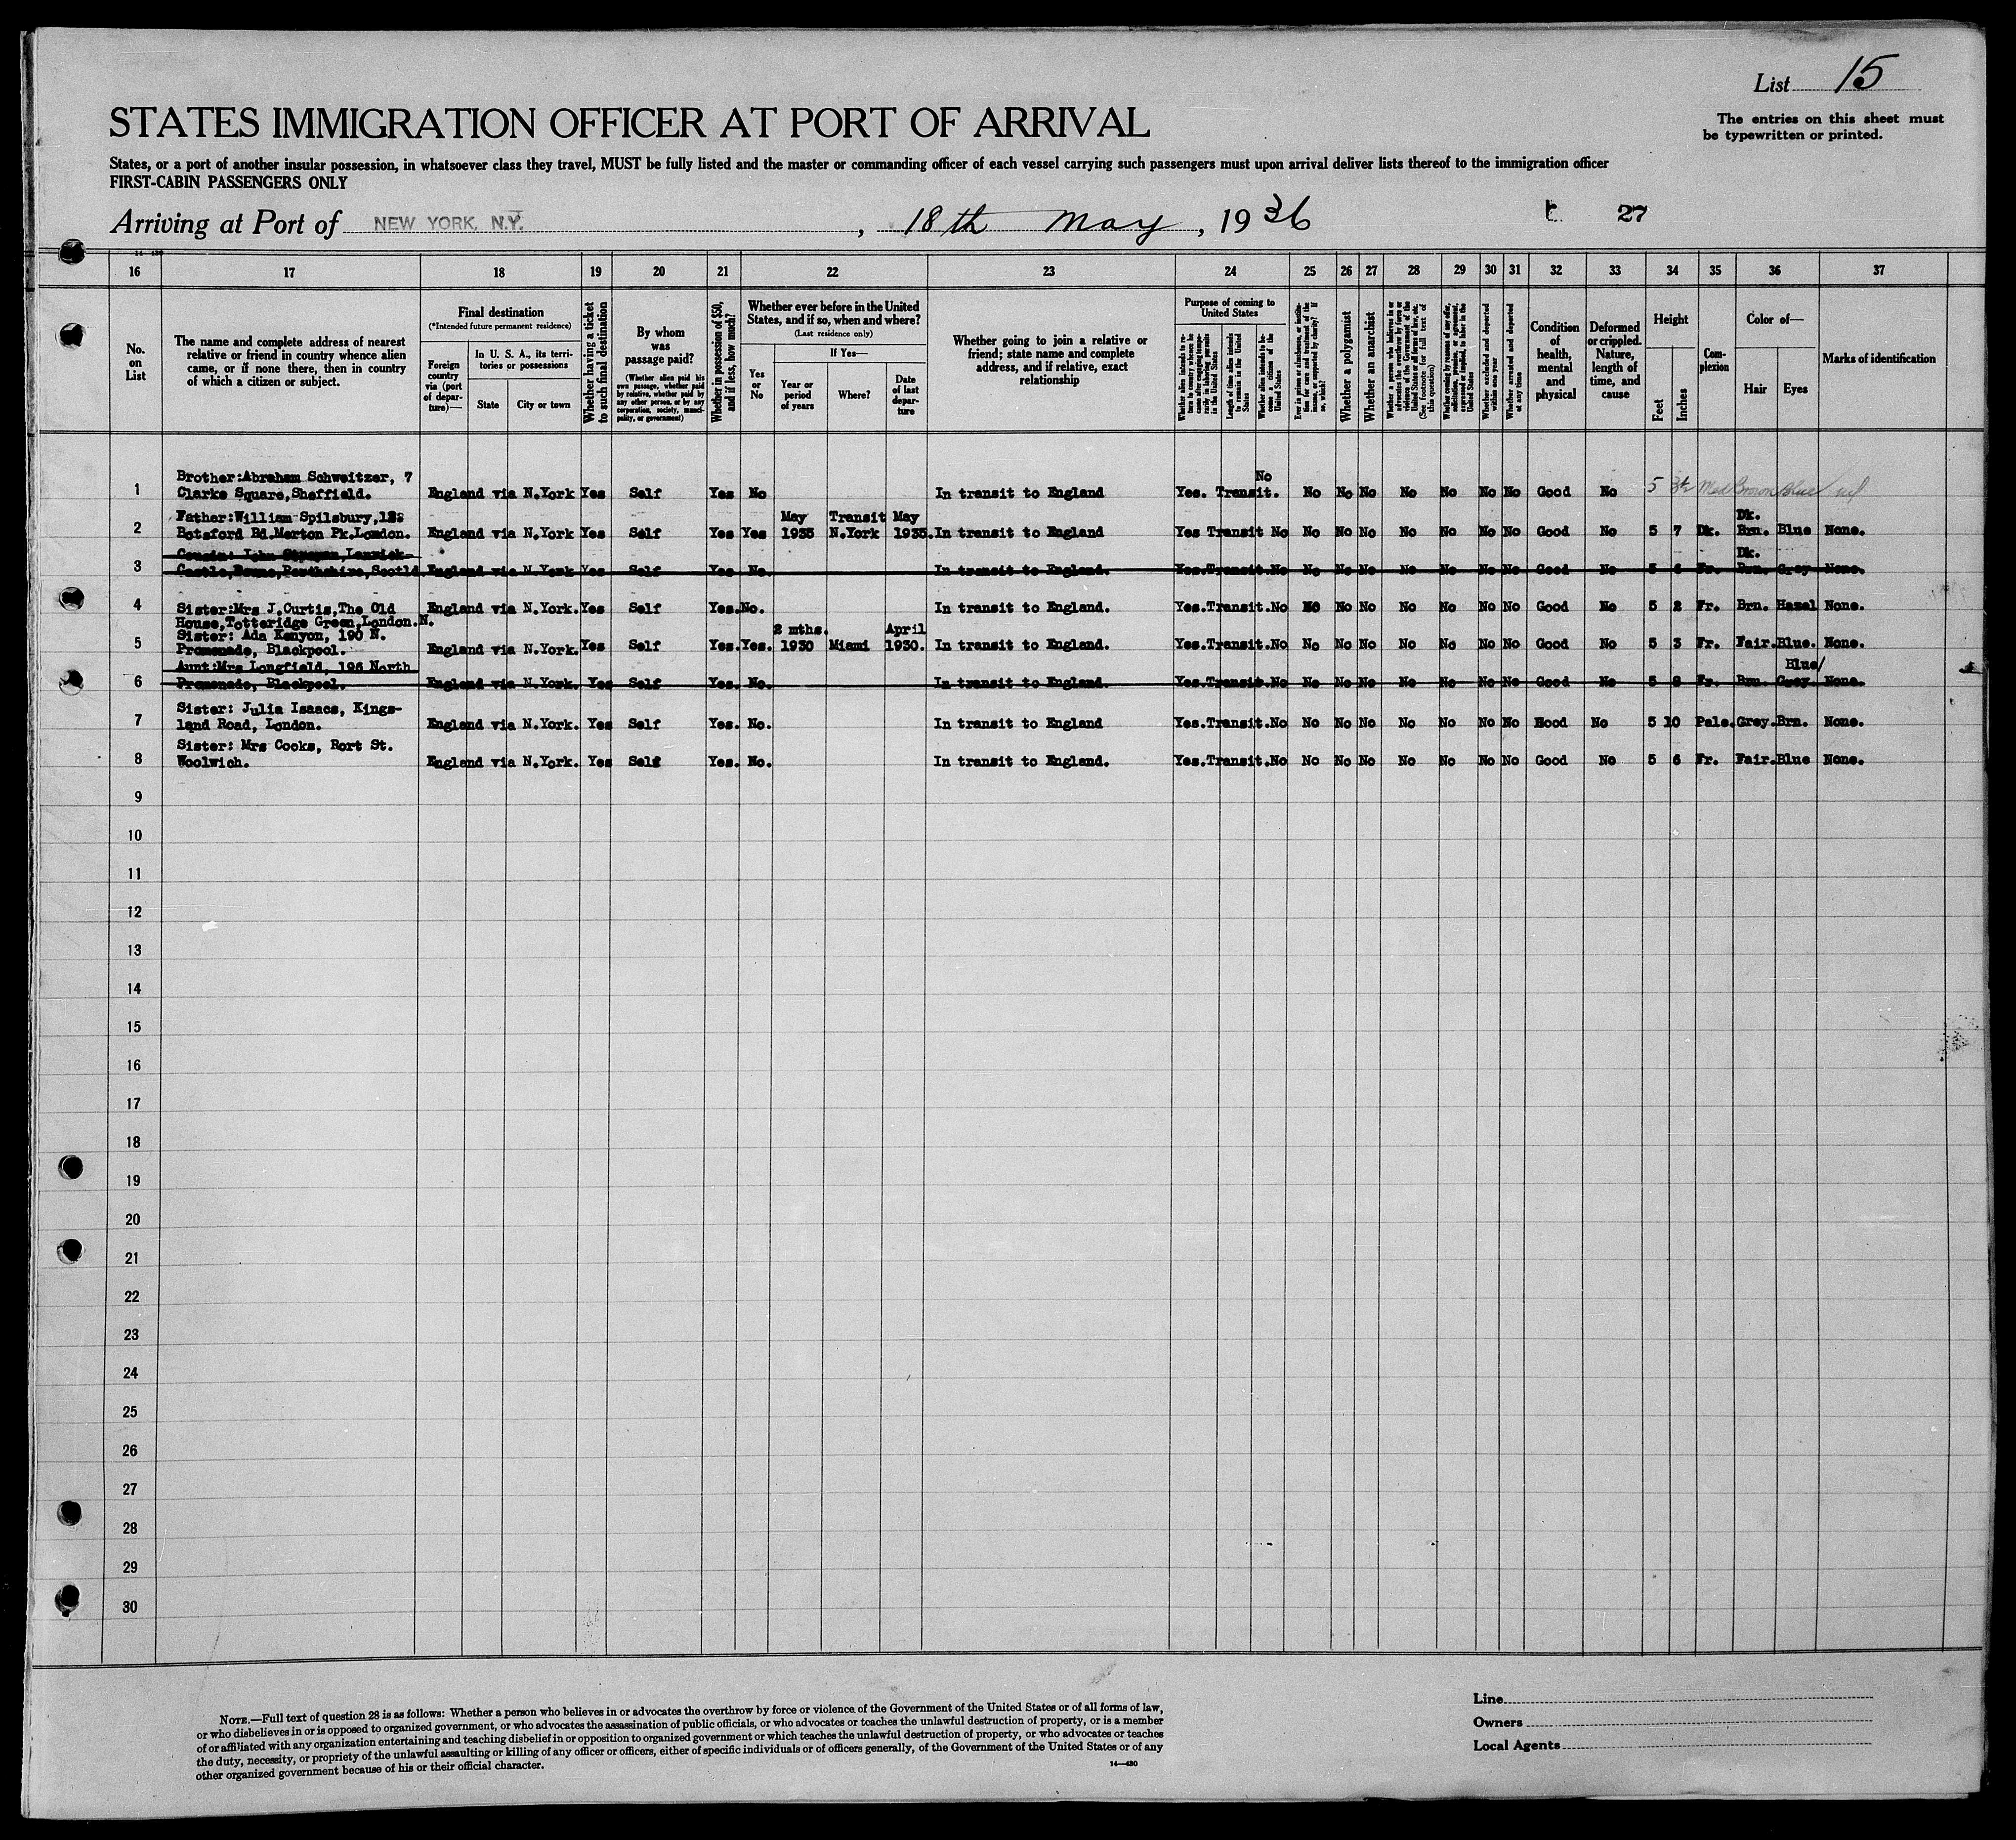 List 15
STATES IMMIGRATION OFFICER AT PORT OF ARRIVAL
The entries on this sheet must
be typewritten or printed.
States, or a port of another insular possession, in whatsoever class they travel, MUST be fully listed and the master or commanding officer of each vessel carrying such passengers must upon arrival deliver lists thereof to the immigration officer
FIRST-CABIN PASSENGERS ONLY
Arriving at Port of NEW YORK, N.Y. , 18th May , 1936 27
16 17 18 19 20 21 22 23 24 25 26 27 28 29 30 31 32 33 34 35 36 37
No. on List
The name and complete address of nearest
relative or friend in country whence alien
came, or if none there, then in country
of which a citizen or subject.
Final destination
(*Intended future permanent residence)
Foreign country via (port of departure)—
In U. S. A., its territories or possessions
State
City or town
Whether having a ticket to such final destination
By whom was passage paid?
(Whether alien paid his own passage, whether paid by relative, whether paid by any other person, or by any corporation, society, municipality, or government)
Whether in possession of $50, and if less, how much?
Whether ever before in the United
States, and if so, when and where?
(Last residence only)
Yes or No
If Yes—
Year or period of years
Where?
Date of last departure
Whether going to join a relative or
friend; state name and complete
address, and if relative, exact
relationship
Purpose of coming to United States
Whether alien intends to return to country whence he came after engaging temporarily in laboring pursuits in the United States
Length of time alien intends to remain in the United States
Whether alien intends to become a citizen of the United States
Ever in prison or almshouse, or institution for care and treatment of the insane, or supported by charity? If so, which?
Whether a polygamist
Whether an anarchist
Whether a person who believes in or advocates the overthrow by force or violence of the Government of the United States or all forms of law, etc. (See footnote for full text of this question)
Whether coming by reason of any offer, solicitation, promise, or agreement, expressed or implied, to labor in the United States
Whether excluded and deported within one year
Whether arrested and deported at any time
Condition of health, mental and physical
Deformed or crippled. Nature, length of time, and cause
Height
Feet
Inches
Complexion
Color of—
Hair
Eyes
Marks of identification
Brother:Abraham Schweitzer, 7 No
1 Clarke Square,Sheffield. England via N.York Yes Self Yes No In transit to England Yes. Transit. No No No No No No No Good No 5 Med Brown Blue nil
Father:William Spilsbury,128 May Transit May Dk.
2 Botsford Rd.Merton Pk.London. England via N.York Yes Self Yes Yes 1935 N.York 1935. In transit to England Yes Transit No No No No No No No No Good No 5 7 Dk. Brn. Blue None.
Cousin: John Dk.
3 Castle, Perthshire,Scotld England via N.York Yes Self Yes No. In transit to England. Yes.Transit.No No No No No No No No Good No 5 6 Fr. Brn. Grey None.
4 Sister:Mrs J.Curtis,The Old England via N.York. Yes Self Yes. No. In transit to England. Yes.Transit.No No No No No No No No Good No 5 2 Fr. Brn. Hazel None.
House,Totteridge Green,London.N.
Sister: Ada Kenyon, 190 N. 2 mths. April
5 Promenade, Blackpool. England via N.York. Yes Self Yes. Yes. 1930 Miami 1930. In transit to England. Yes.Transit.No No No No No No No No Good No 5 3 Fr. Fair. Blue. None.
Aunt:Mrs Longfield, 196 North Blue/
6 Promenade, Blackpool. England via N.York. Yes Self Yes. No. In transit to England. Yes.Transit.No No No No No No No No Good No 5 8 Fr. Brn. Grey. None.
Sister: Julia Isaacs, Kings-
7 land Road, London. England via N.York. Yes Self Yes. No. In transit to England Yes.Transit.No No No No No No No No Hood No 5 10 Pale. Grey. Brn. None.
Sister: Mrs Cooks, Rort St.
8 Woolwich. England via N.York. Yes Self Yes. No. In transit to England. Yes.Transit.No No No No No No No No Good No 5 6 Fr. Fair. Blue None.
9
10
11
12
13
14
15
16
17
18
19
20
21
22
23
24
25
26
27
28
29
30
NOTE.—Full text of question 28 is as follows: Whether a person who believes in or advocates the overthrow by force or violence of the Government of the United States or of all forms of law,
or who disbelieves in or is opposed to organized government, or who advocates the assassination of public officials, or who advocates or teaches the unlawful destruction of property, or is a member
of or affiliated with any organization entertaining and teaching disbelief in or opposition to organized government or which teaches the unlawful destruction of property, or who advocates or teaches
the duty, necessity, or propriety of the unlawful assaulting or killing of any officer or officers, either of specific individuals or of officers generally, of the Government of the United States or of any
other organized government because of his or their official character.
14—430
Line
Owners
Local Agents